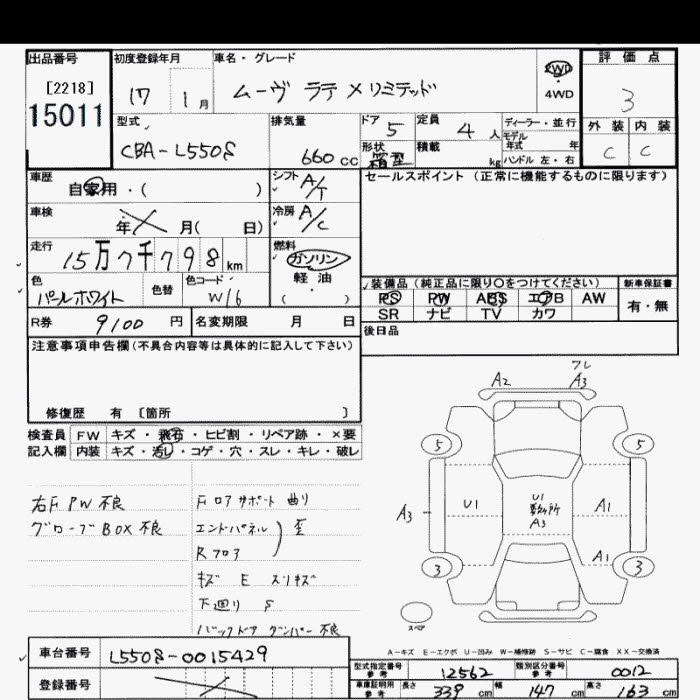 出品番号 初度登録年月 車名・グレード 評価点
[2218] 17 1月 ムーヴ ラテ Xリミテッド 2WD 4WD 3
15011
型式 排気量 ドア 5 定員 4人 ディーラー・並行 外装 内装
モデル
CBA-L550S 660cc 形状 箱型 積載 kg 年式 年 C C
ハンドル 左・右
車歴 シフト A/T セールスポイント（正常に機能するものに限ります）
自家用・（ ）
車検 冷房 A/C
年 月（ 日）
走行 燃料
15万7千798km ガソリン
軽油
色 色替 色コード （ ） 装備品（純正品に限り○をつけてください） 新車保証書
パールホワイト W16 PS PW ABS エアB AW 有・無
SR ナビ TV カワ
R券 9100円 名変期限 月 日 後日品
注意事項申告欄（不具合内容等は具体的に記入して下さい）
修復歴 有〔箇所 〕
フレ
A2 A3
検査員 FW キズ・飛石・ヒビ割・リペア跡・×要
記入欄 内装 キズ・汚レ・コゲ・穴・スレ・キレ・破レ
5 5
右F PW 不良 Fロアサポート 曲り
U1 U1 A1
A3
グローブBOX 不良 エンドパネル 歪
A3
Rフロア
A1
キズ E スリキズ
3 3
下廻り S
スペア
バックドア ダンパー 不良
A-キズ E-エクボ U-凹み W-補修跡 S-サビ C-腐食 XX-交換済
車台番号 L550S-0015429
型式指定番号 参考 12562 類別区分番号 参考 0012
登録番号
車庫証明用 参考 長さ 339cm 幅 147cm 高さ 163cm